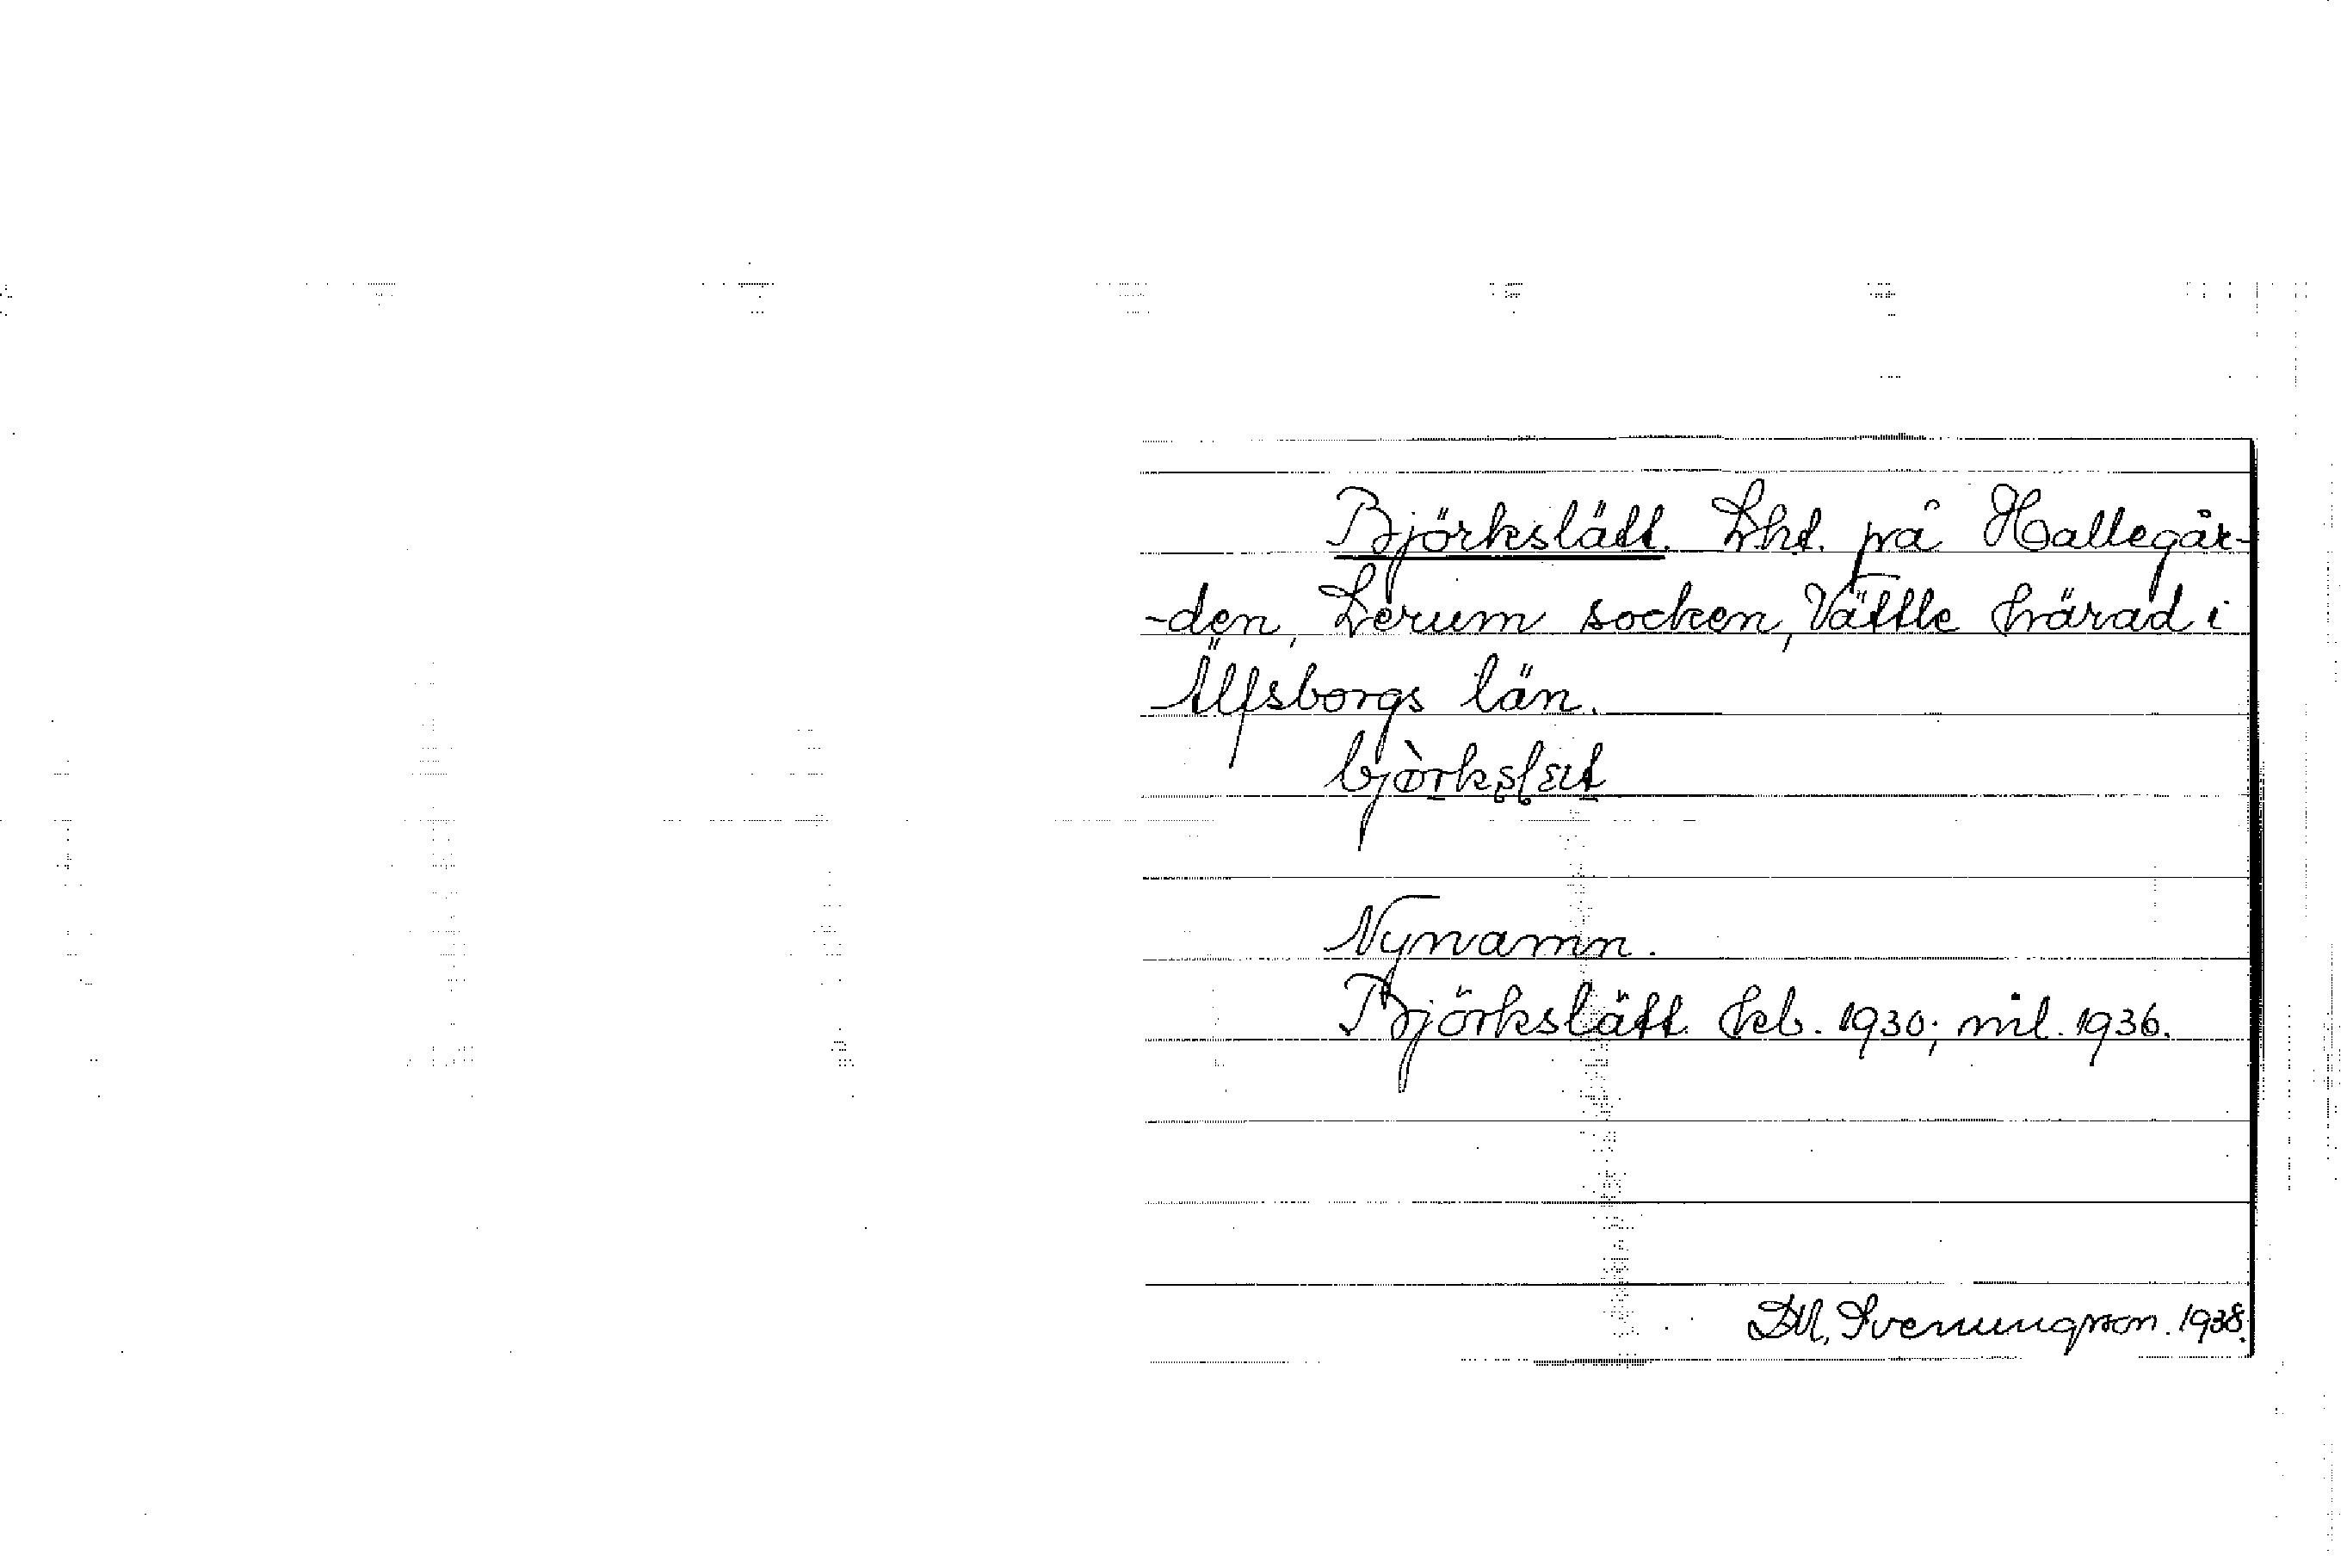 Björkslätt. Lht. på Hallegår-
-den, Lerum socken, Vättle härad i
Älfsborgs län.
Nynamn.
Björkslätt hb. 1930; ml. 1936.
D.M. Svenungson. 1938.